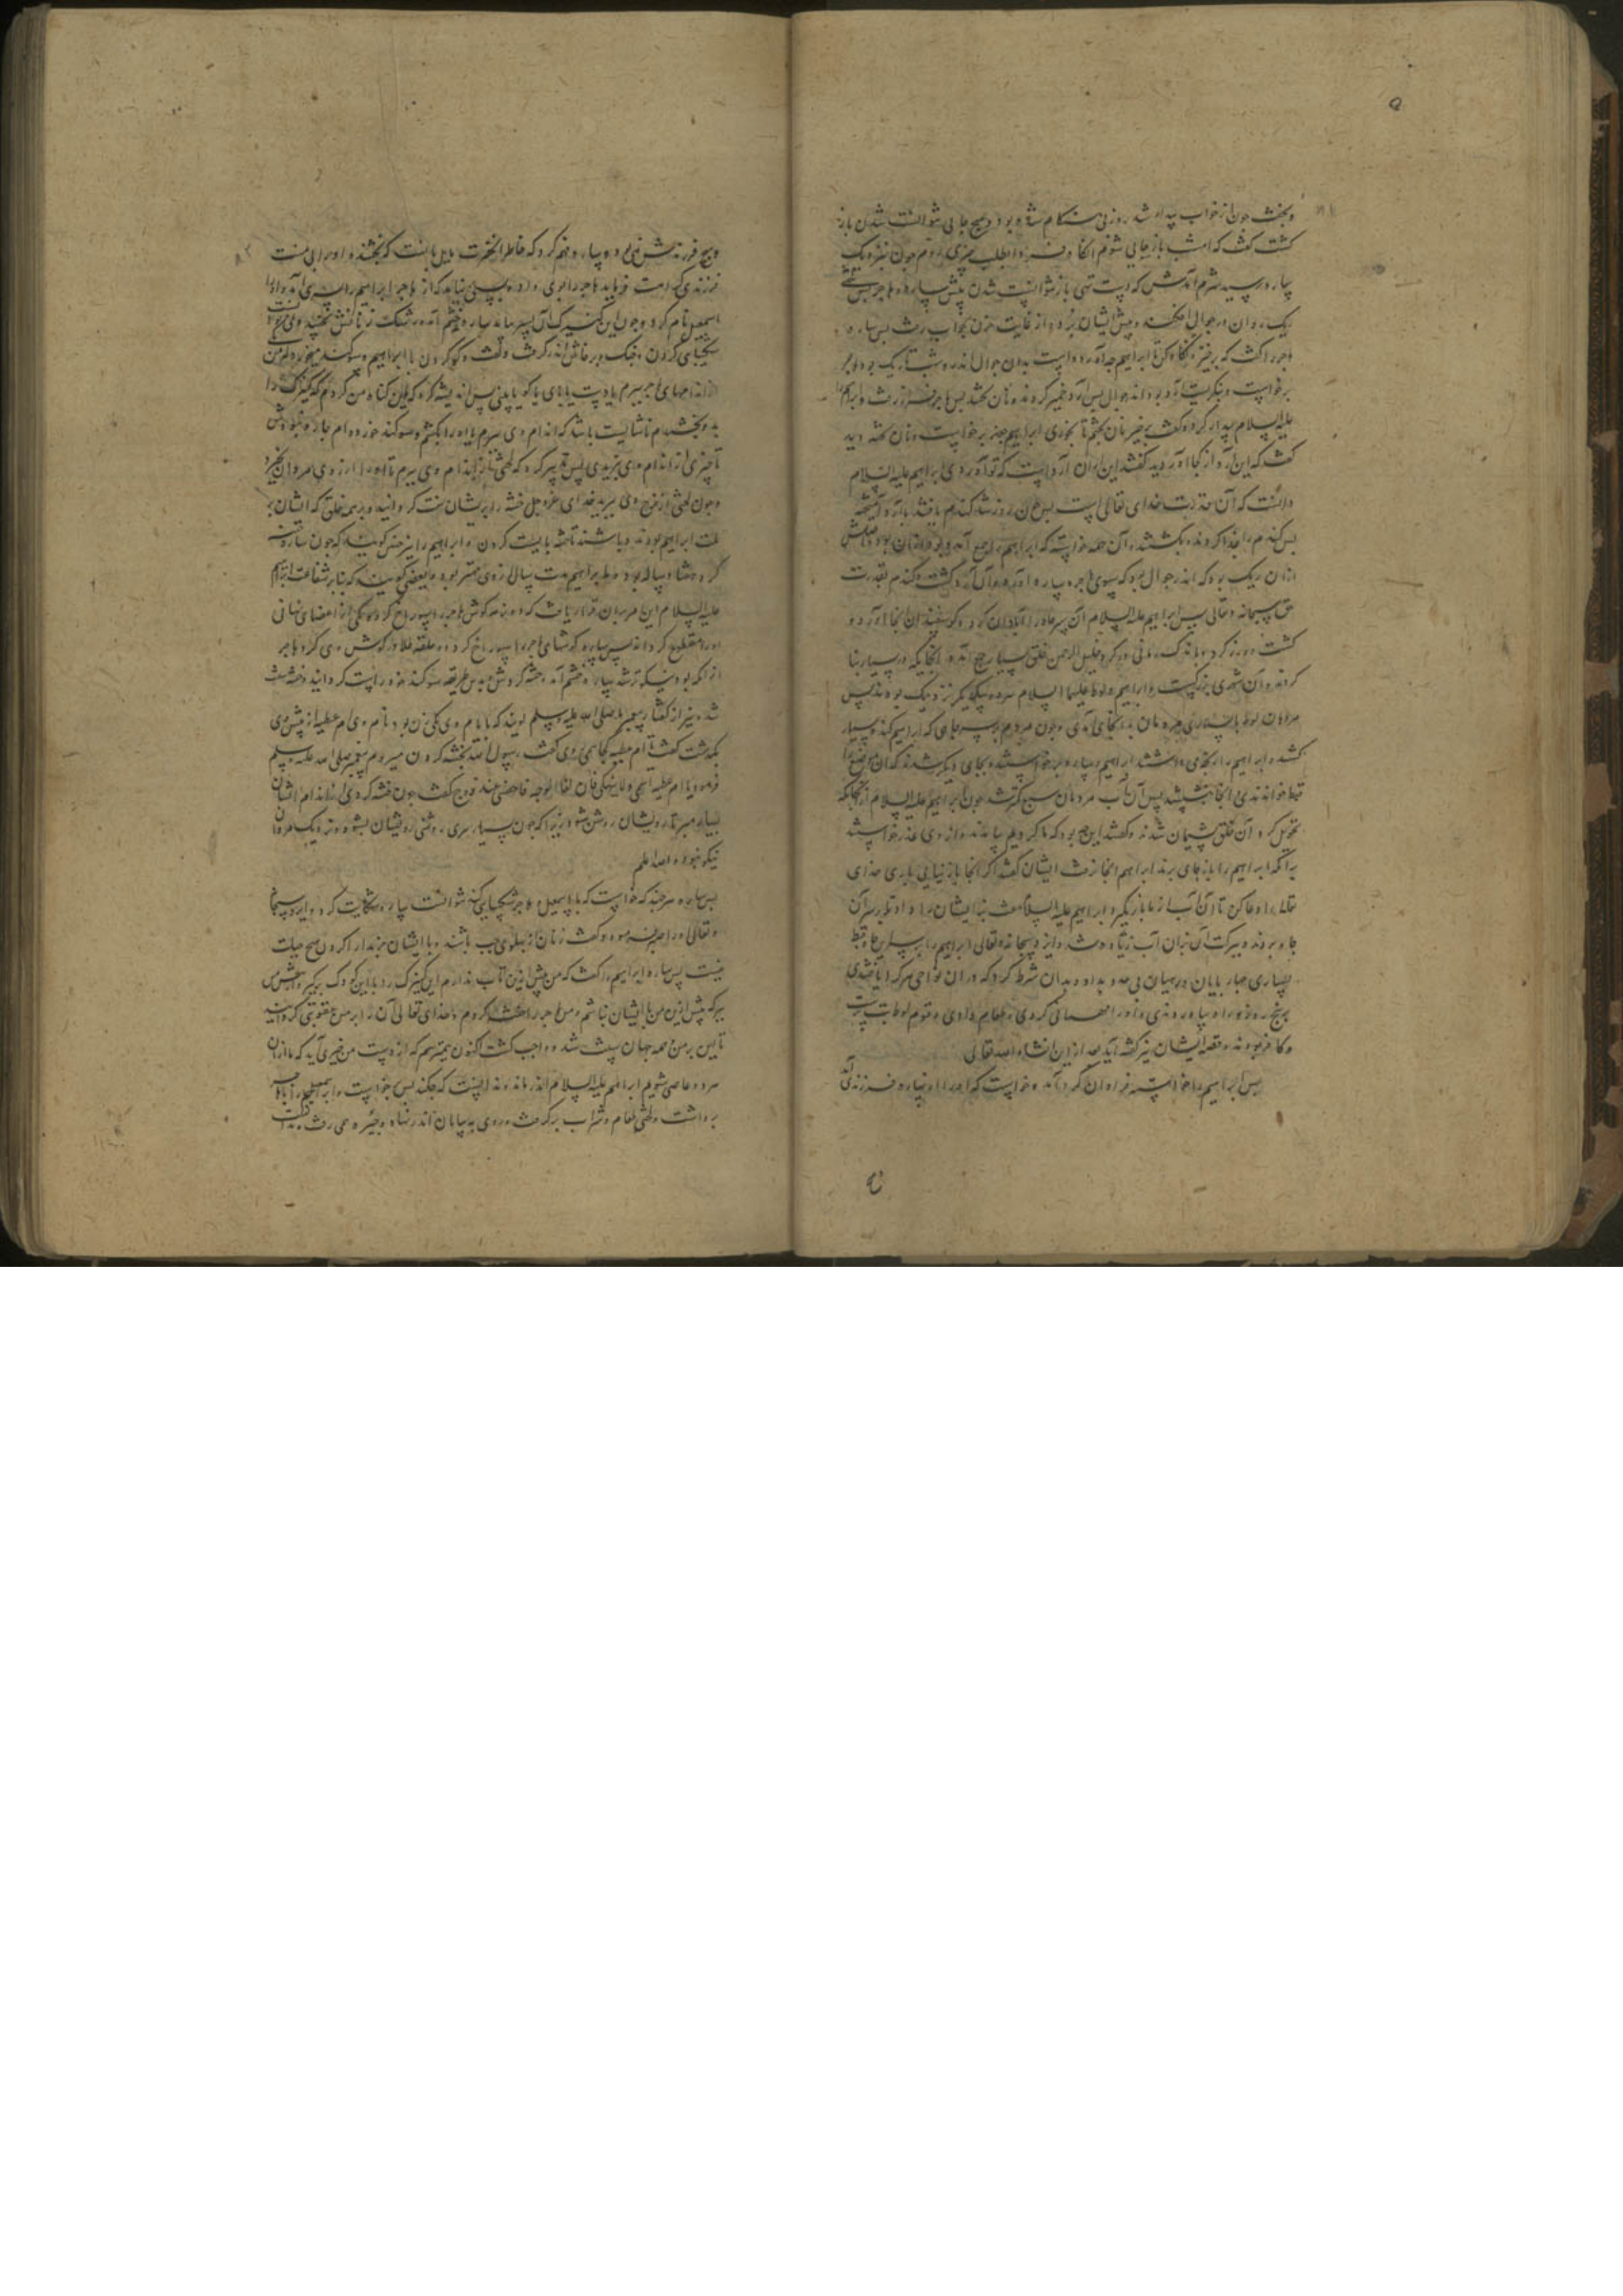 و بخفت چون از خواب بیدار شد روز بی هنگام شده بود و هیچ جایی نتوانست شدن باز
گشت گفت که امشب باز جایی شوم آنگاه فردا طلب چیزی روم چون نزدیک
ساره رسید شرم آمدش که دست تهی باز نتوانست شدن پیش ساره و هاجر
ریک روان در جوال افکند و پیش ایشان برد و از غایت حزن بخواب رفت پس ساره
هاجر را گفت که برخیز و نگاه کن تا ابراهیم چه آورده است بدین جوال اندر و شب تاریک بود هاجر
برخواست و بنگریست آرد بود اندر جوال پس آرد خمیر کردند و نان پختند پس هاجر فراز رفت و ابراهیم
علیه السلام بیدار کرد و گفت برخیز نان پختیم تا بخوری ابراهیم چون برخواست و نان پخته دید
گفت که این آرد از کجا آوردید گفتند این از آن آرد است که تو آوردی ابراهیم علیه السلام
دانست که آن قدرت خدای تعالی است پس چون روز شد گندم یافتند با آرد آمیخته
پس گندم را جدا کردند و بکشتند و آن همه خواسته که ابراهیم را جمع آمده بود از آن بود و اصلش
از آن ریک بود که اندر جوال بود که بسوی هاجر و ساره آورد و آن آرد گشت و گندم بقدرت
حق سبحانه و تعالی پس ابراهیم علیه السلام آن سر چاه را آبادان کرد و گوسفندان آنجا آورد و
کشت و ورز کرد و باندک زمانی در گرد خلیل الرحمن خلق بسیار جمع آمدند و آنجایگه در بسیار بنا
کردند و آن شهری بزرگست و ابراهیم و لوط علیهما السلام هر دو بیکدیگر نزدیک بودند پس
مردمان لوط بسیاری مردمان بدانجای آمدی و چون مردم بر سر چاهی که ابراهیم کنده بسیار
گشتند ابراهیم را رنجه می داشتند ابراهیم و ساره برخواستند و بجای دیگر شدند که آن موضع را
قط خواندندی و آنجا بنشستند پس آن آب مردمان هیچ کمتر شد چون ابراهیم علیه السلام از آنجایگه
تحویل کرد آن خلق پشیمان شدند و گفتند این چه بود که ما کردیم بیامدند و از وی عذر خواستند
تا مگر ابراهیم را باز جای برند ابراهیم آنجا نرفت ایشان گفتند اگر آنجا باز نیایی باری خدای
تعالی را دعا کن تا آن آب از ما باز نگیرد ابراهیم علیه السلام هفت بز ایشان را داد تا بر سر آن
چاه بردند و ببرکت آن بزان آب زیاده شد و ایزد سبحانه و تعالی ابراهیم را بر سر این چاه قط
بسیاری چهار پایان و رهیان بی حد بداد و بدان شرط کرد که در آن نواحی هر که را یافتندی
برنج روزه و راه بیاوردندی و او را مهمانی کردی و طعام دادی و قوم لوط بت پرست
و کافر بودند و قصه ایشان نیز گفته آید بعد ازین انشاء الله تعالی
پس ابراهیم را خواسته فراوان گرد آمد و خواست که او را از ساره فرزندی آید
و هیچ فرزندش نمی بود و ساره فهم کرد که خاطر آنحضرت مایل بآنست که بخشنده او را بی منت
فرزندی کرامت فرماید هاجر را بوی داد و بسی نیامد که از هاجر ابراهیم را پسری آمد و او را
اسمعیل نام کرد و چون این کنیزک را آن پسر بیامد ساره را خشم آمد و رشک زنانش بجنبید
شکیبایی کردن و جنگ و پرخاش اندر گرفت و گفت و گو کردن با ابراهیم و سوگند میخورد که من
از اندامهای هاجر ببرم یا دست یا پای یا گوش یا بینی پس اندیشه کرد که این گناه من کردم که کنیزک را
بدو بخشیدم ناشایست باشد که اندام وی ببرم یا او را بکشم و سوگند خورده ام چاره نبودش
تا چیزی از اندام وی نبریدی پس تدبیر کرد که لختی از اندام وی ببرم تا او را آرزوی مردان نخیزد
و چون لختی از فرج وی ببرید خدای عز و جل ختنه را بر ایشان سنت گردانید و بر همه خلق که ایشان بر
ملت ابراهیم بودند و باشند تا ختنه بایست کردن و ابراهیم را نیز چنین گویند که چون ساره ختنه
کرد هشتاد ساله بود و لوط بر ابراهیم مدت سال از وی مهتر بود و بعضی گویند که بنا بر شفاعت ابراهیم
علیه السلام این امر بر آن قرار یافت که دو نرمه گوش هاجر را سوراخ کرد و اندکی از اعضای نهانی
او را مقطوع گرداند پس ساره گوشهای هاجر را سوراخ کرد و دو حلقه طلا در گوش وی کرد و هاجر
از آنکه بود نیکوتر شد ساره را خشم آمد ختنه کردش بدین طریقه سوگند خود راست گردانید و ختنه سنت
شد و نیز از گفتار پیغمبر ما صلی الله علیه و سلم گویند که با ایام وی یکی زن بود نام وی ام عطیه از پیش وی
بگذشت گفت یا ام عطیه کجا همی روی گفت یا رسول الله بختنه کردن میروم پیغمبر صلی الله علیه و سلم
فرمود یا ام عطیه اشمی و لا تنهکی فان انقا الوجه فاحظی عند الزوج گفت چون ختنه کردی از اندام ایشان
بسیار مبر تا رویشان روشن شود زیرا که چون بسیار ببری روشنی رویشان بشود و نزدیک مردان
نیکو نبود و الله اعلم
پس ساره هر چند که خواست که با اسمعیل و هاجر شکیبایی کند نتوانست ساره شکایت کرد و ایزد سبحانه
و تعالی او را صبر فرمود و گفت زنان از پهلوی چپ باشند و با ایشان جز مدارا کردن هیچ حیلت
نیست پس ساره ابراهیم را گفت که من پیش ازین تاب ندارم این کنیزک را با این کودک برگیر و از پیش من
ببر که پیش ازین من با ایشان نباشم و من هاجر را ختنه کردم و خدای تعالی آن را بر من عقوبتی گردانید
تا این بر من و همه جهان سنت شد و واجب گشت اکنون بترسم که از دست من چیزی آید که ما از آن
هر دو عاصی شویم ابراهیم علیه السلام اندر ماند و ندانست که چکند پس برخواست و اسمعیل را با هاجر
برداشت و لختی طعام و شراب برگرفت و روی به بیابان اندر نهاد و خیره همی رفت